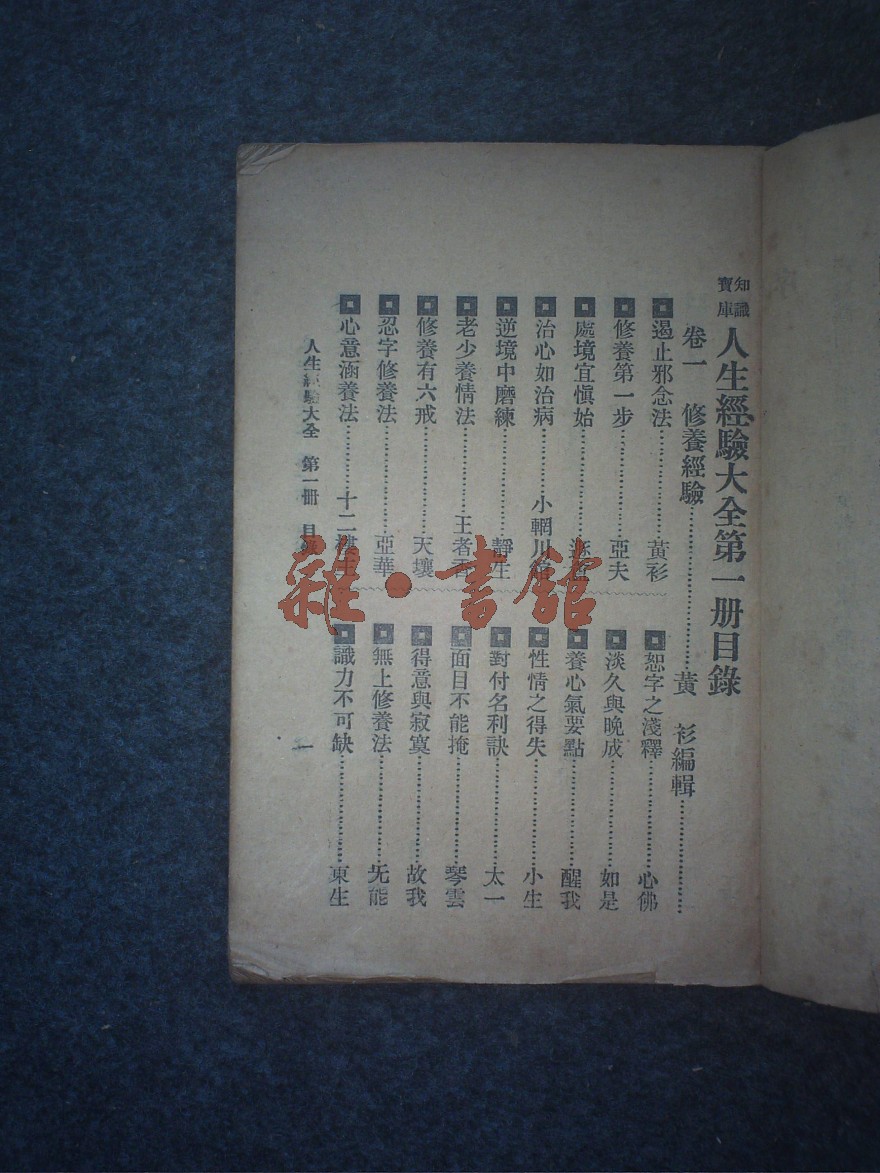 知識寶庫 人生經驗大全第一册目錄
卷一 修養經驗……黃 衫編輯……
遏止邪念法……黃衫
修養第一步……亞夫
處境宜愼始……
治心如治病……小輞川
逆境中磨練……靜生
老少養情法……王者香
修養有六戒……天壤
忍字修養法……亞華
心意涵養法……十二樓主
恕字之淺釋……心佛
淡久與晚成……如是
養心氣要點……醒我
性情之得失……小生
對付名利訣……太一
面目不能掩……琴雲
得意與寂寞……故我
無上修養法……旡能
識力不可缺……東生
人生經驗大全 第一册 目錄
一
雜·書館